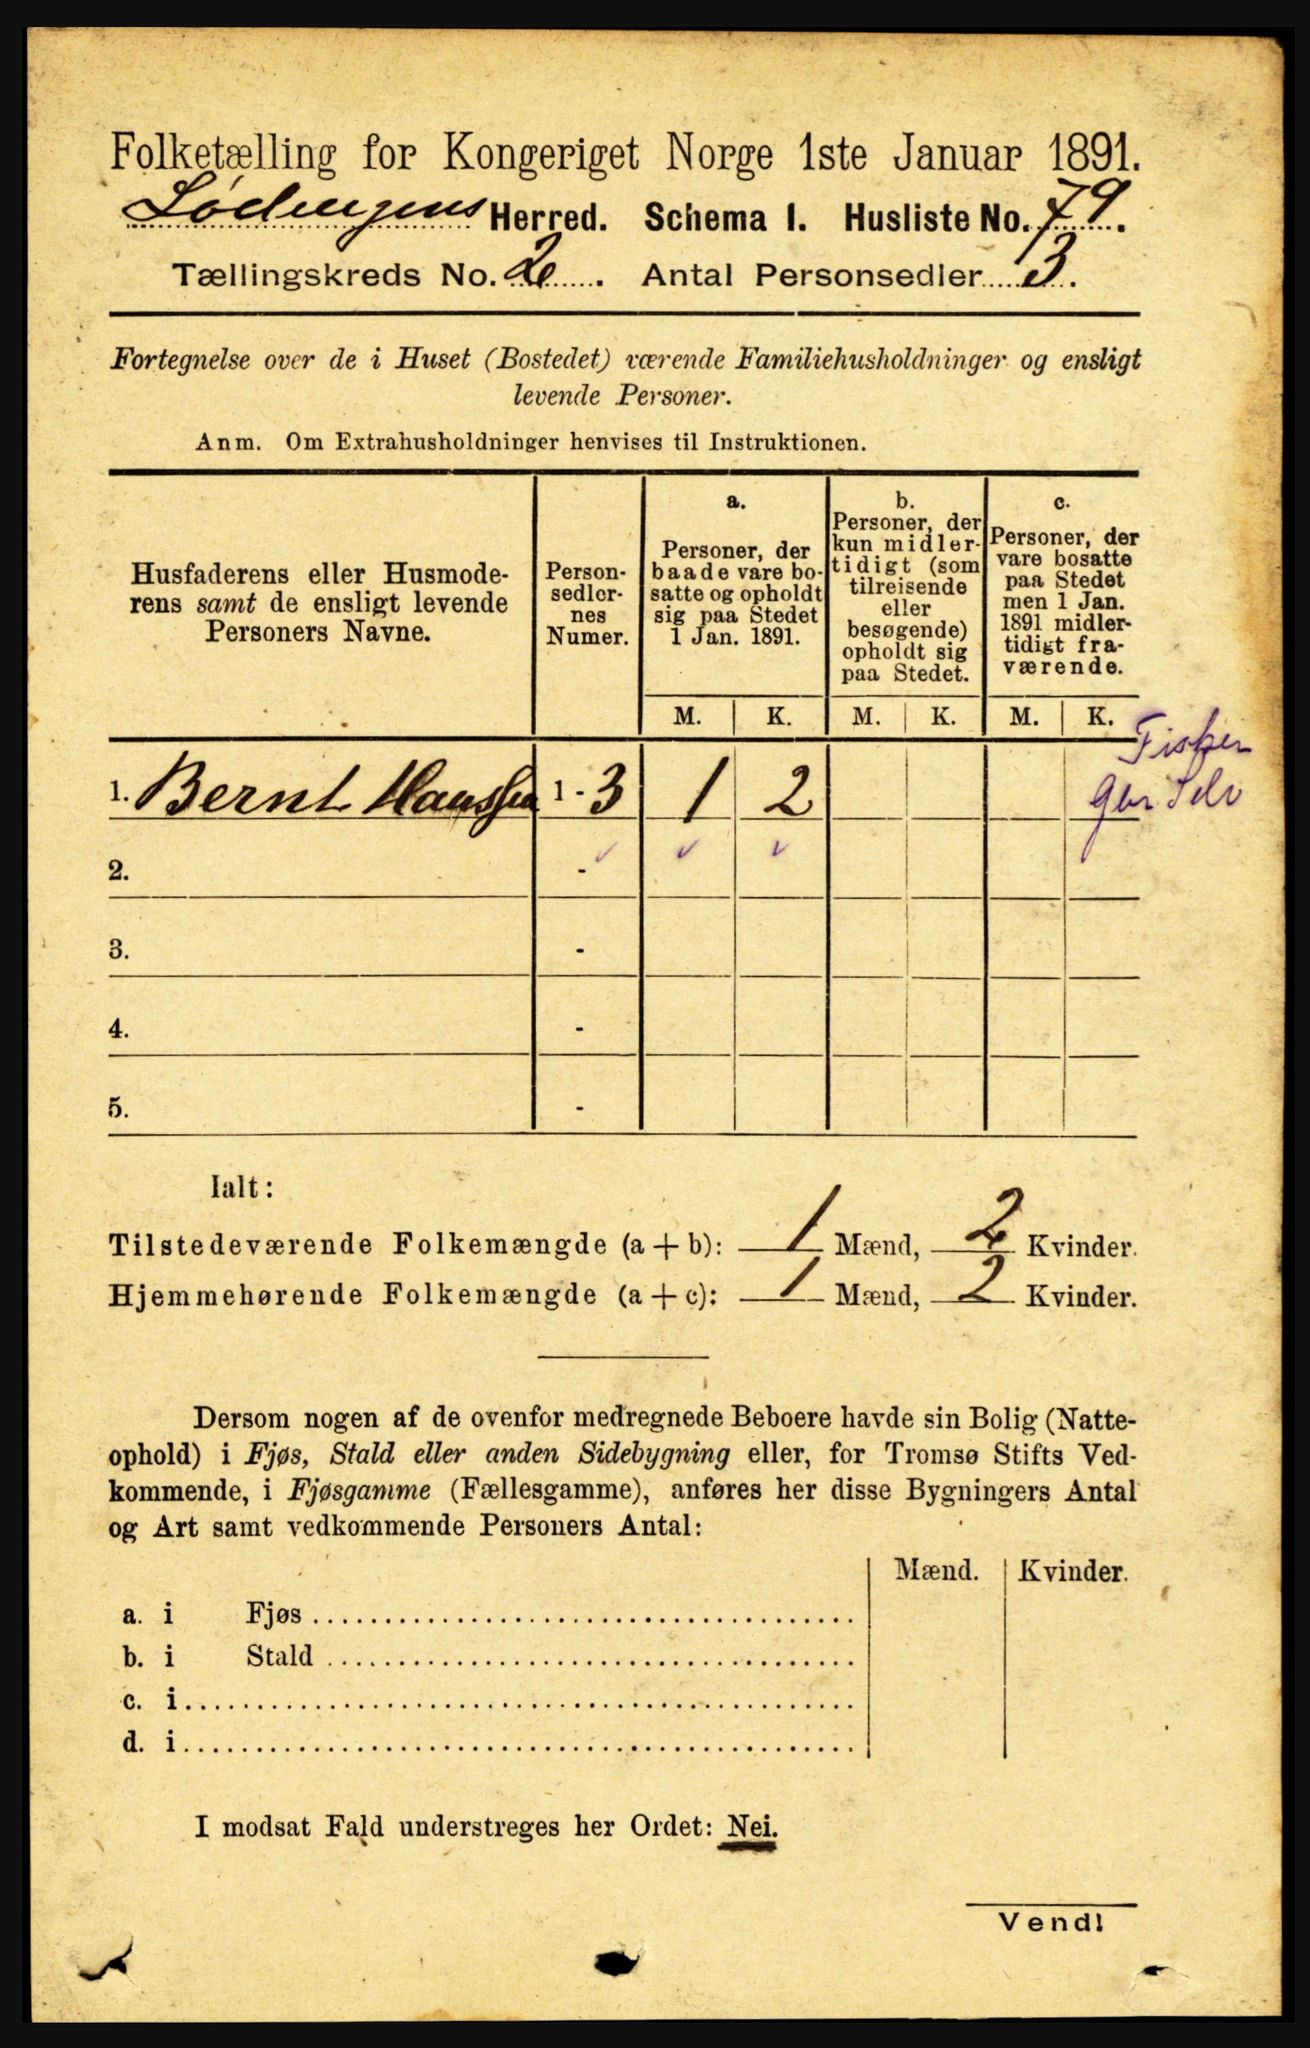 Folketælling for Kongeriget Norge 1ste Januar 1891.
Lødingens Herred. Schema I. Husliste No. 79.
Tællingskreds No. 2. Antal Personsedler 3.
Fortegnelse over de i Huset (Bostedet) værende Familiehusholdninger og ensligt
levende Personer.
Anm. Om Extrahusholdninger henvises til Instruktionen.
Husfaderens eller Husmode-
rens samt de ensligt levende
Personers Navne.
Person-
sedler-
nes
Numer.
a.
Personer, der
baade vare bo-
satte og opholdt
sig paa Stedet
1 Jan. 1891.
b.
Personer, der
kun midler-
tidigt (som
tilreisende
eller
besøgende)
opholdt sig
paa Stedet.
c.
Personer, der
vare bosatte
paa Stedet
men 1 Jan.
1891 midler-
tidigt fra-
værende.
M. K. M. K. M. K.
Fisker
1. Bernt Hanssen 1 - 3 1 2
Selv
2. -
3. -
4. -
5. -
Ialt:
Tilstedeværende Folkemængde (a + b): 1 Mænd, 2 Kvinder.
Hjemmehørende Folkemængde (a + c): 1 Mænd, 2 Kvinder.
Dersom nogen af de ovenfor medregnede Beboere havde sin Bolig (Natte-
ophold) i Fjøs, Stald eller anden Sidebygning eller, for Tromsø Stifts Ved-
kommende, i Fjøsgamme (Fællesgamme), anføres her disse Bygningers Antal
og Art samt vedkommende Personers Antal:
Mænd. Kvinder.
a. i Fjøs
b. i Stald
c. i
d. i
I modsat Fald understreges her Ordet: Nei.
Vend!